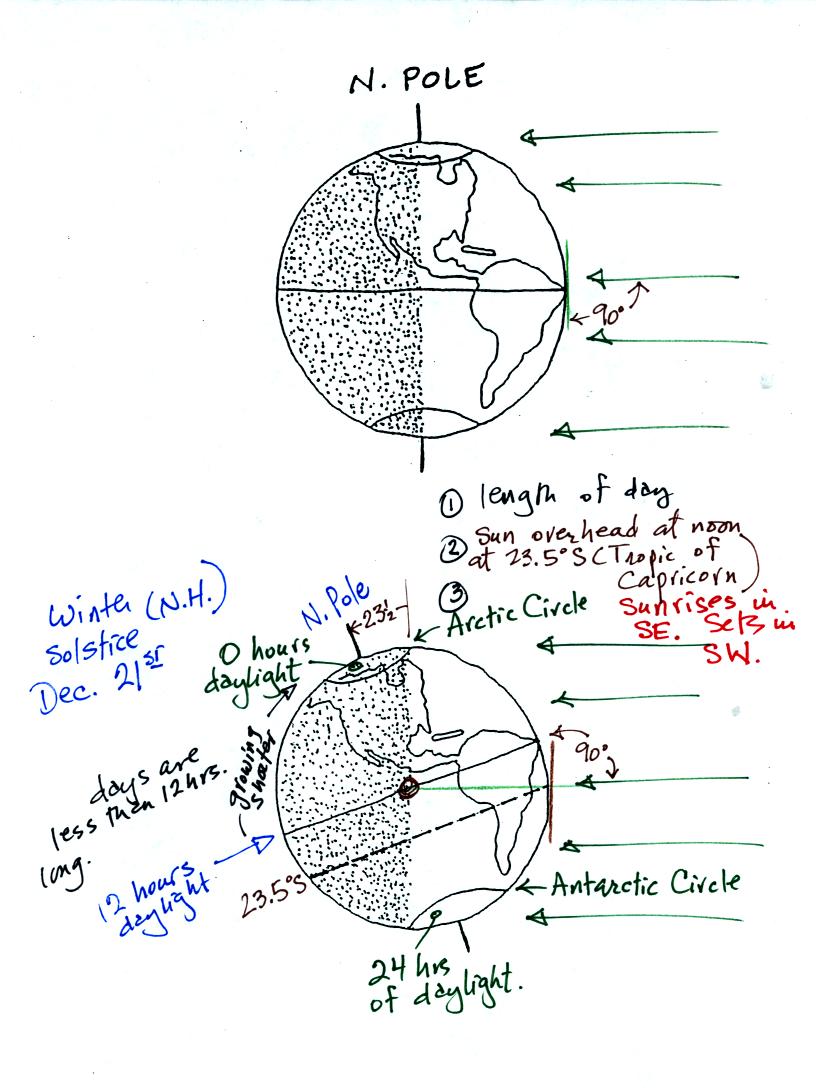 N. POLE
90°
① length of day
② Sun overhead at noon
at 23.5°S (Tropic of
Capricorn)
③ Sunrises in
SE. Sets in
SW.
Winter (N.H.)
Solstice
Dec. 21st
N. Pole
23½
Arctic Circle
0 hours
daylight
growing
shorter
90°
days are
less than 12 hrs.
long.
12 hours
daylight
23.5°S
Antarctic Circle
24 hrs
of daylight.